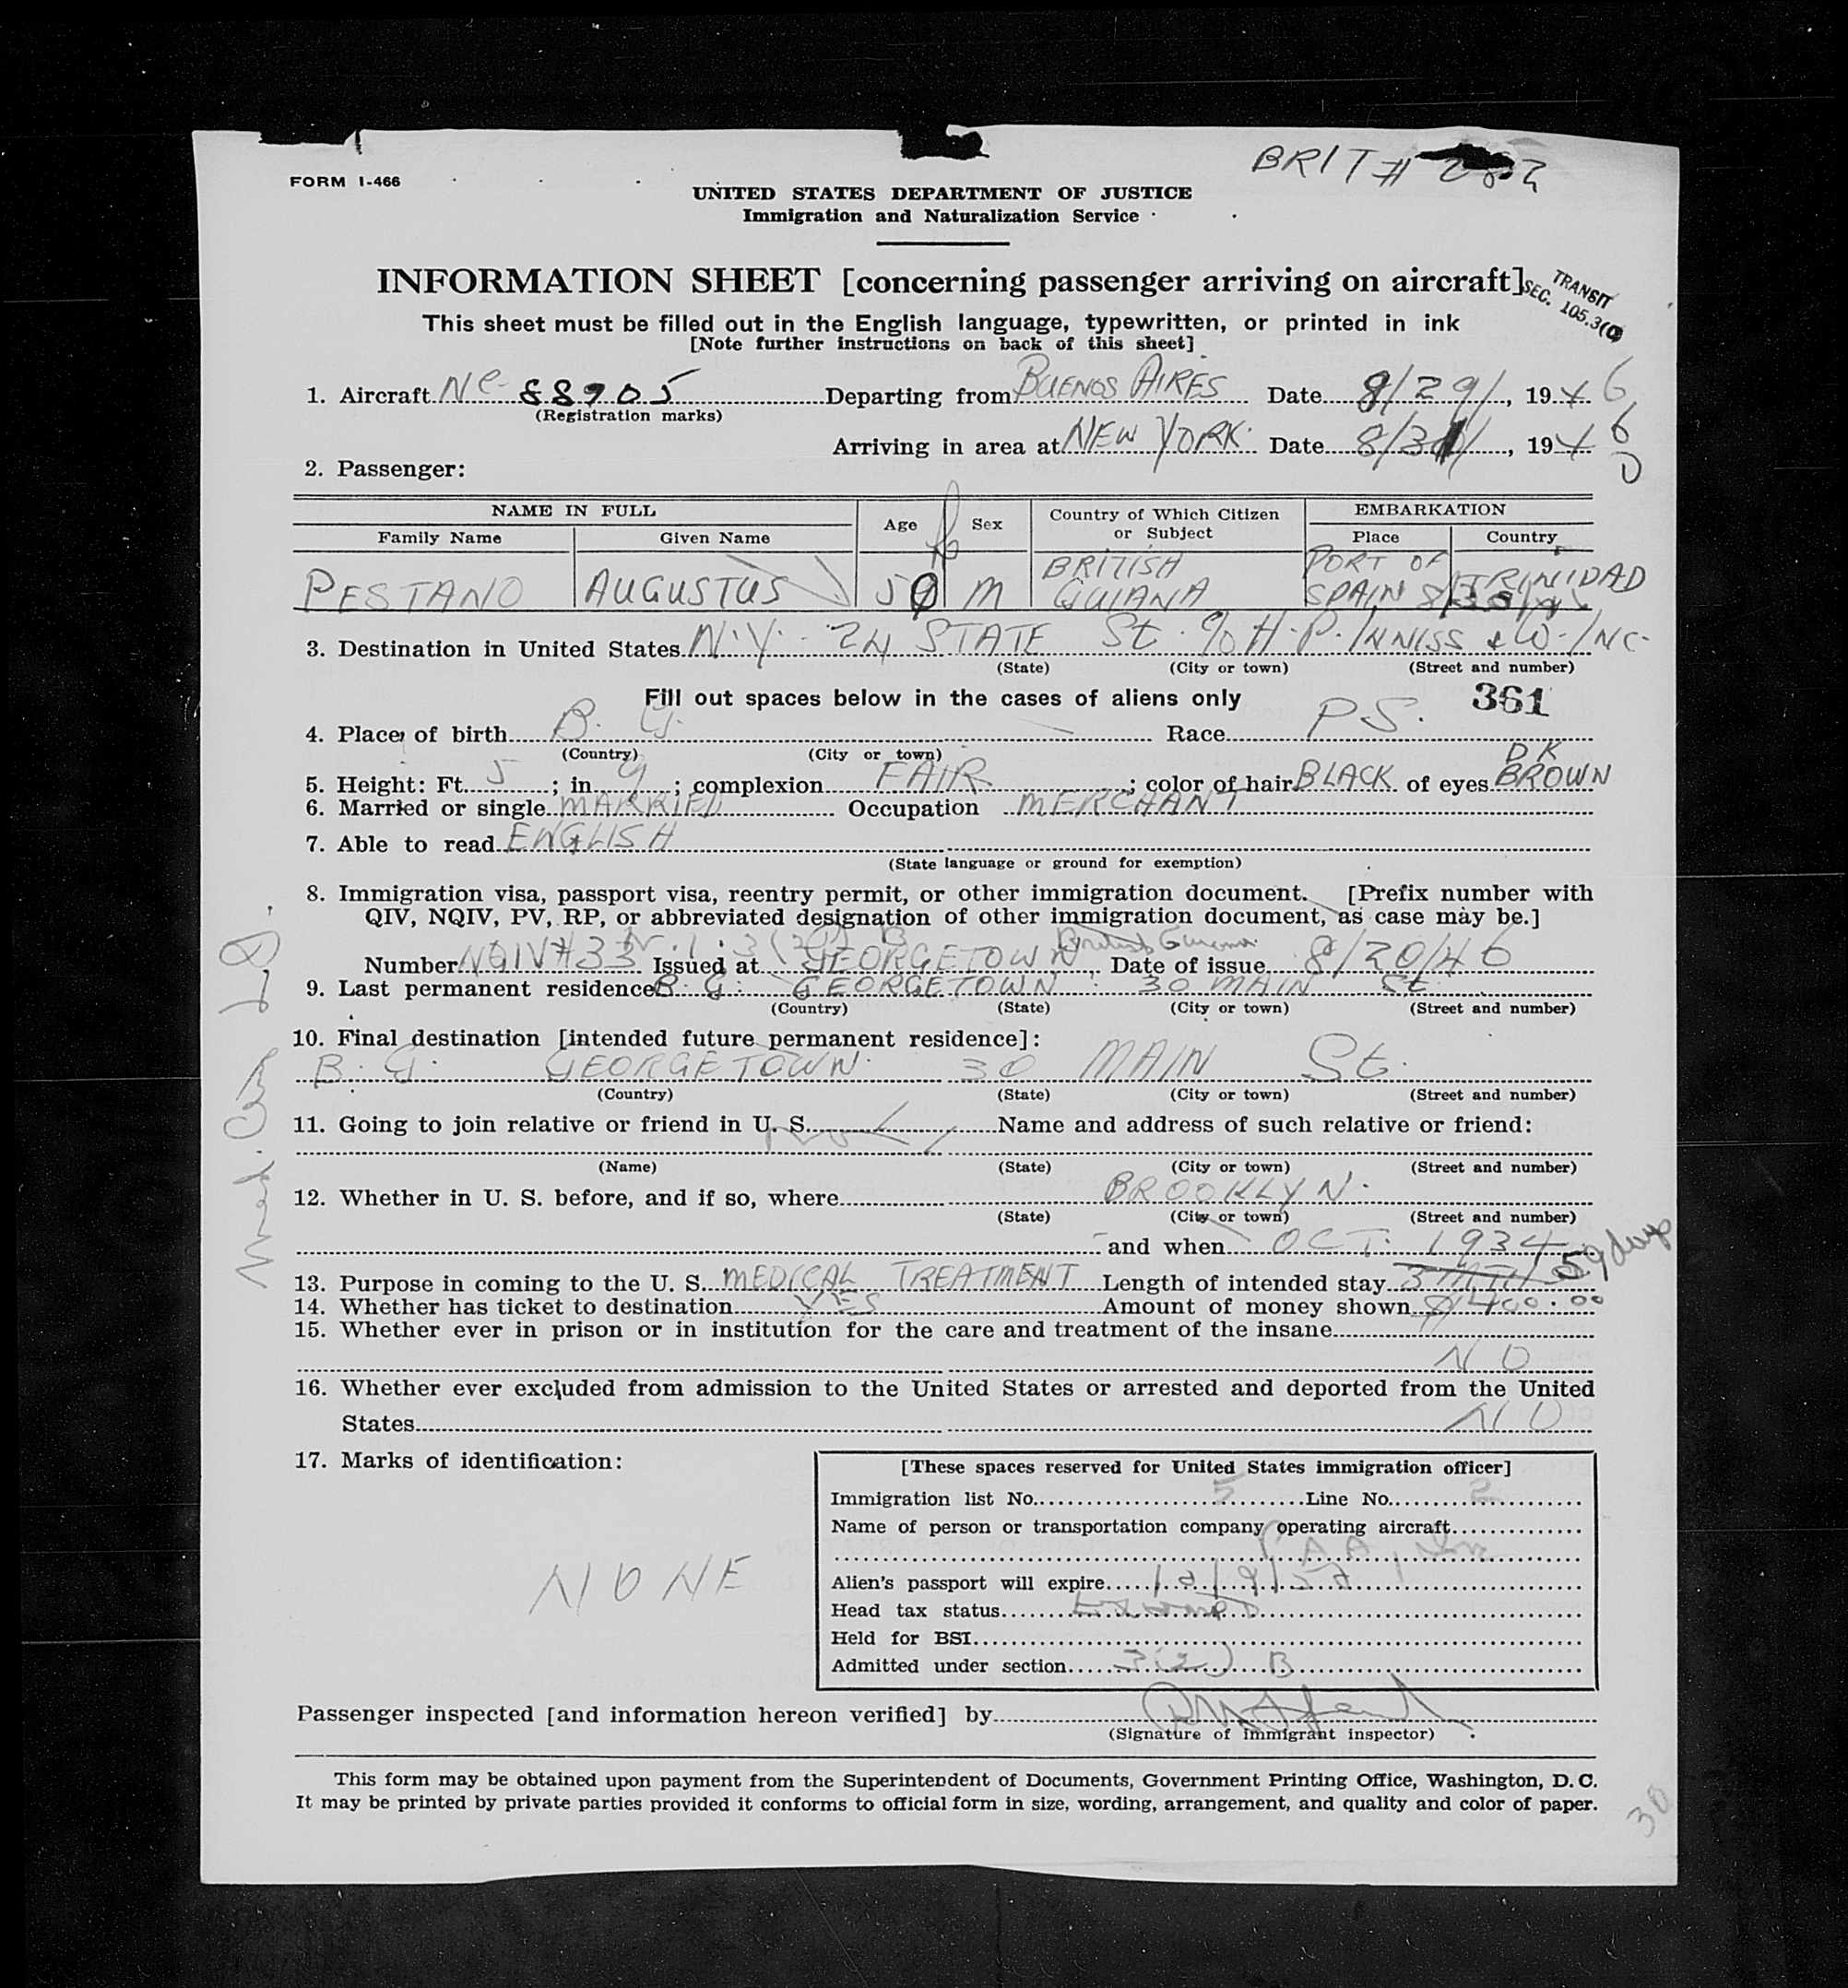 BRIT #
FORM I-466
UNITED STATES DEPARTMENT OF JUSTICE
Immigration and Naturalization Service
INFORMATION SHEET [concerning passenger arriving on aircraft]
TRANSIT
SEC. 105.3(
This sheet must be filled out in the English language, typewritten, or printed in ink
[Note further instructions on back of this sheet]
1. Aircraft NC 88905 Departing from BUENOS AIRES Date 8/29/, 1946
(Registration marks)
Arriving in area at NEW YORK. Date 8/31/, 1946
2. Passenger:
NAME IN FULL Age Sex Country of Which Citizen or Subject EMBARKATION
Family Name Given Name Place Country
PESTANO AUGUSTUS 50 M BRITISH GUIANA PORT OF SPAIN TRINIDAD
3. Destination in United States N.Y. 24 STATE St. % H.P. INNISS & W. INC.
(State) (City or town) (Street and number)
Fill out spaces below in the cases of aliens only 361
4. Place of birth B. G. Race P S.
(Country) (City or town)
5. Height: Ft. 5; in 9; complexion FAIR; color of hair BLACK of eyes DK BROWN
6. Married or single MARRIED Occupation MERCHANT
7. Able to read ENGLISH
(State language or ground for exemption)
8. Immigration visa, passport visa, reentry permit, or other immigration document. [Prefix number with
QIV, NQIV, PV, RP, or abbreviated designation of other immigration document, as case may be.]
3(2) B British Guiana
Number NQIV#33 Issued at GEORGETOWN, Date of issue 8/20/46
9. Last permanent residence B. G. GEORGETOWN 30 MAIN St.
(Country) (State) (City or town) (Street and number)
10. Final destination [intended future permanent residence]:
B. G. GEORGETOWN. 30 MAIN St.
(Country) (State) (City or town) (Street and number)
11. Going to join relative or friend in U. S. No Name and address of such relative or friend:
(Name) (State) (City or town) (Street and number)
12. Whether in U. S. before, and if so, where BROOKLYN.
(State) (City or town) (Street and number)
and when OCT. 1934
59 days
13. Purpose in coming to the U. S. MEDICAL TREATMENT Length of intended stay
14. Whether has ticket to destination YES Amount of money shown $1400.00
15. Whether ever in prison or in institution for the care and treatment of the insane
NO
16. Whether ever excluded from admission to the United States or arrested and deported from the United
States NO
17. Marks of identification:
NONE
[These spaces reserved for United States immigration officer]
Immigration list No. 5 Line No. 2
Name of person or transportation company operating aircraft
P A A
Alien's passport will expire
Head tax status
Held for BSI
Admitted under section 3(2) B
Passenger inspected [and information hereon verified] by
(Signature of immigrant inspector)
This form may be obtained upon payment from the Superintendent of Documents, Government Printing Office, Washington, D. C.
It may be printed by private parties provided it conforms to official form in size, wording, arrangement, and quality and color of paper.
30